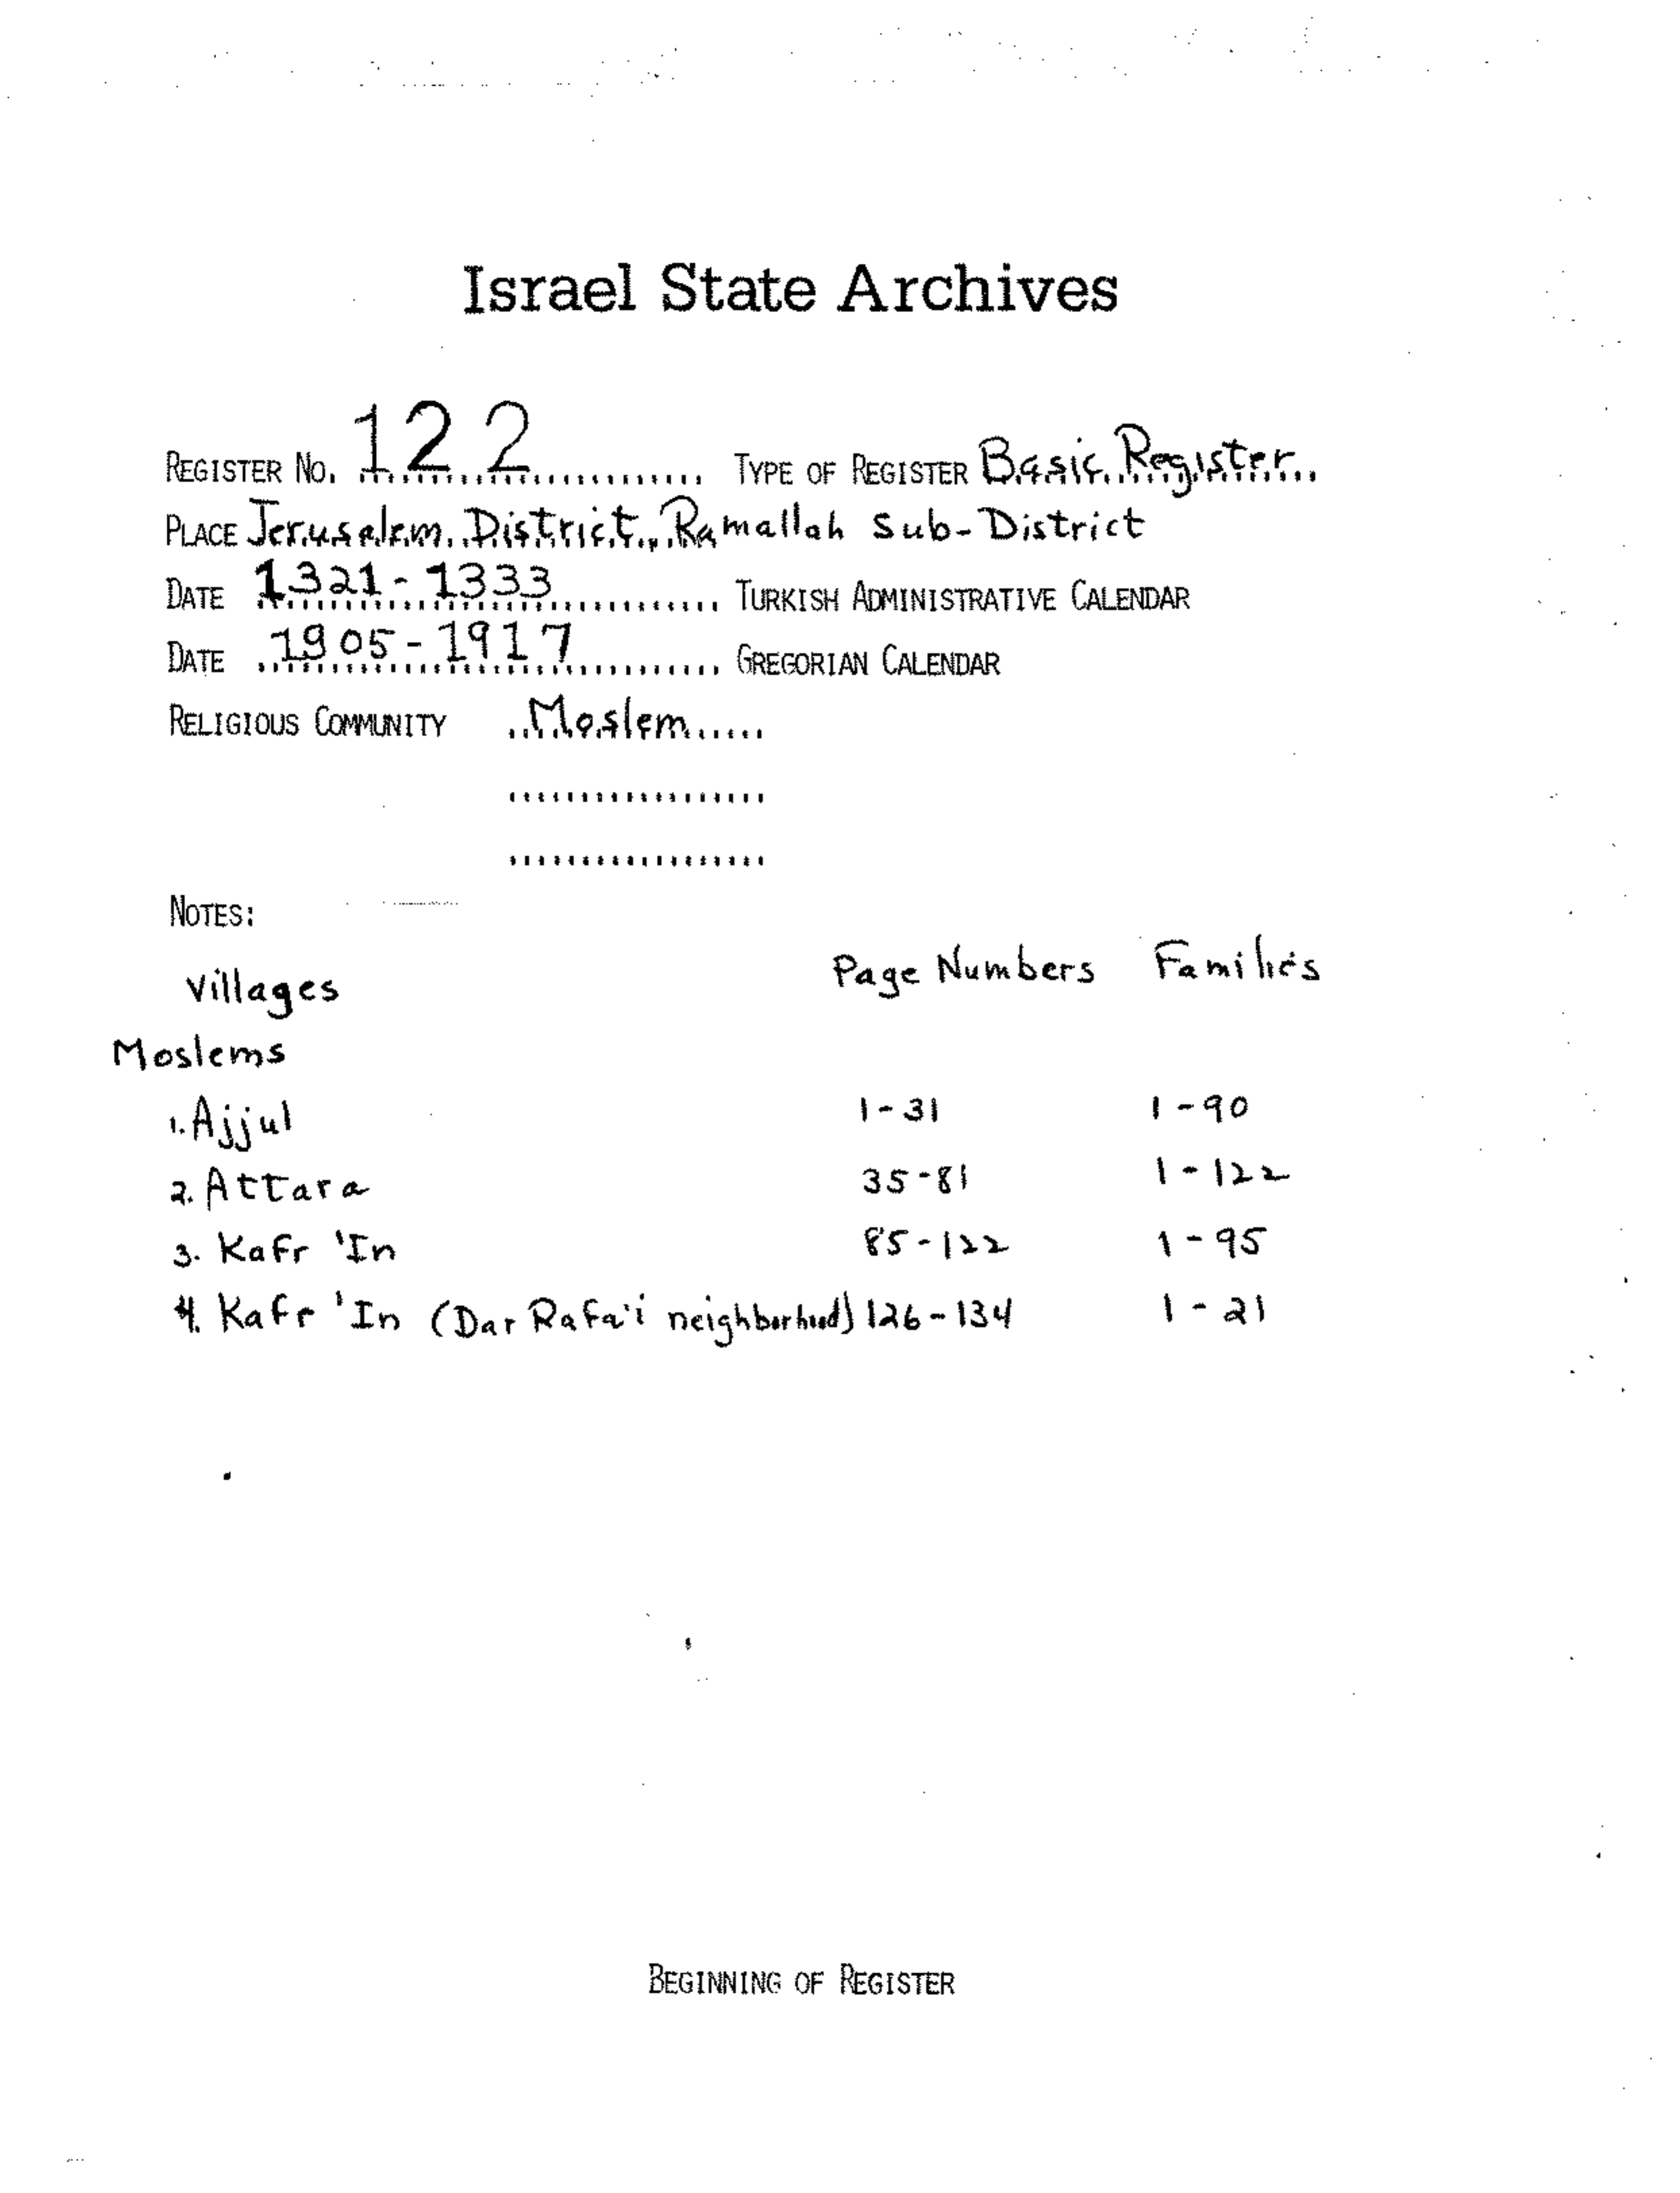 Israel State Archives
REGISTER NO. 122 TYPE OF REGISTER Basic Register
PLACE Jerusalem District, Ramallah Sub-District
DATE 1321-1333 TURKISH ADMINISTRATIVE CALENDAR
DATE 1905-1917 GREGORIAN CALENDAR
RELIGIOUS COMMUNITY Moslem
NOTES:
Villages Page Numbers Families
Moslems
1. Ajjul 1-31 1-90
2. Attara 35-81 1-122
3. Kafr 'In 85-122 1-95
4. Kafr 'In (Dar Rafa'i neighborhood) 126-134 1-21
BEGINNING OF REGISTER